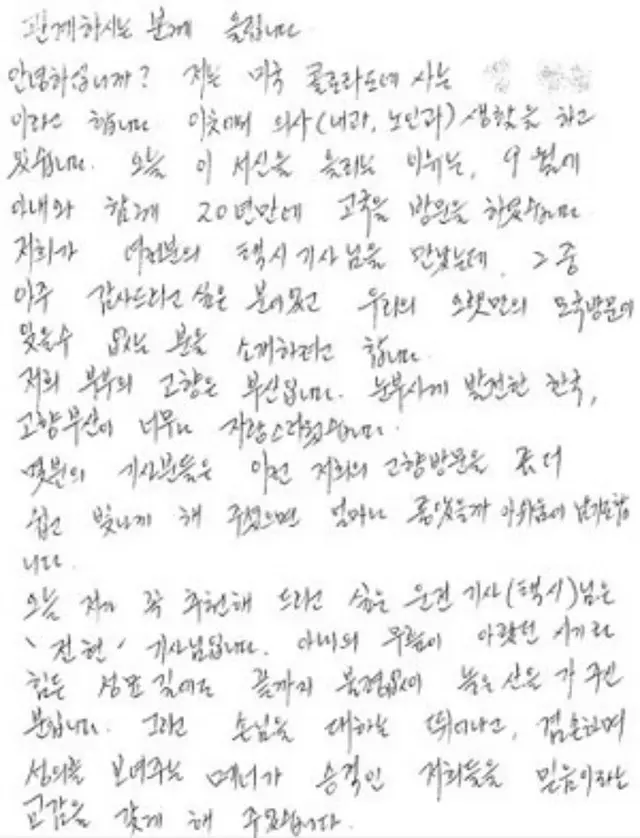 관계하시는 분께 올립니다
안녕하십니까? 저는 미국 콜로라도에 사는
이라고 합니다. 이곳에서 의사(내과, 노인과) 생활을 하고
있습니다. 오늘 이 서신을 올리는 이유는, 9월에
아내와 함께 20년만에 고국을 방문을 하였습니다.
저희가 여러분의 택시 기사님을 만났는데, 그 중
아주 감사드리고 싶은 분이 있고 우리의 오랫만의 모국방문에
잊을수 없는 분을 소개하려고 합니다.
저희 부부의 고향은 부산입니다. 눈부시게 발전한 한국,
고향부산이 너무나 자랑스러웠습니다.
몇분의 기사분들은 이런 저희의 고향방문을 좀 더
쉽고 빛나게 해 주셨으면 얼마나 좋았을까 아쉬움이 남기도합
니다.
오늘 제가 꼭 추천해 드리고 싶은 운전 기사(택시)님은
'전현' 기사님입니다. 아내의 무릎이 아팠던 시기라
힘든 성묘 길에도 끝까지 불평없이 높은 산을 가 주신
분입니다. 그리고 손님을 대하는 뛰어나고, 겸손하며
성의를 보여주는 매너가 승객인 저희들을 믿음이라는
교감을 갖게 해 주었습니다.